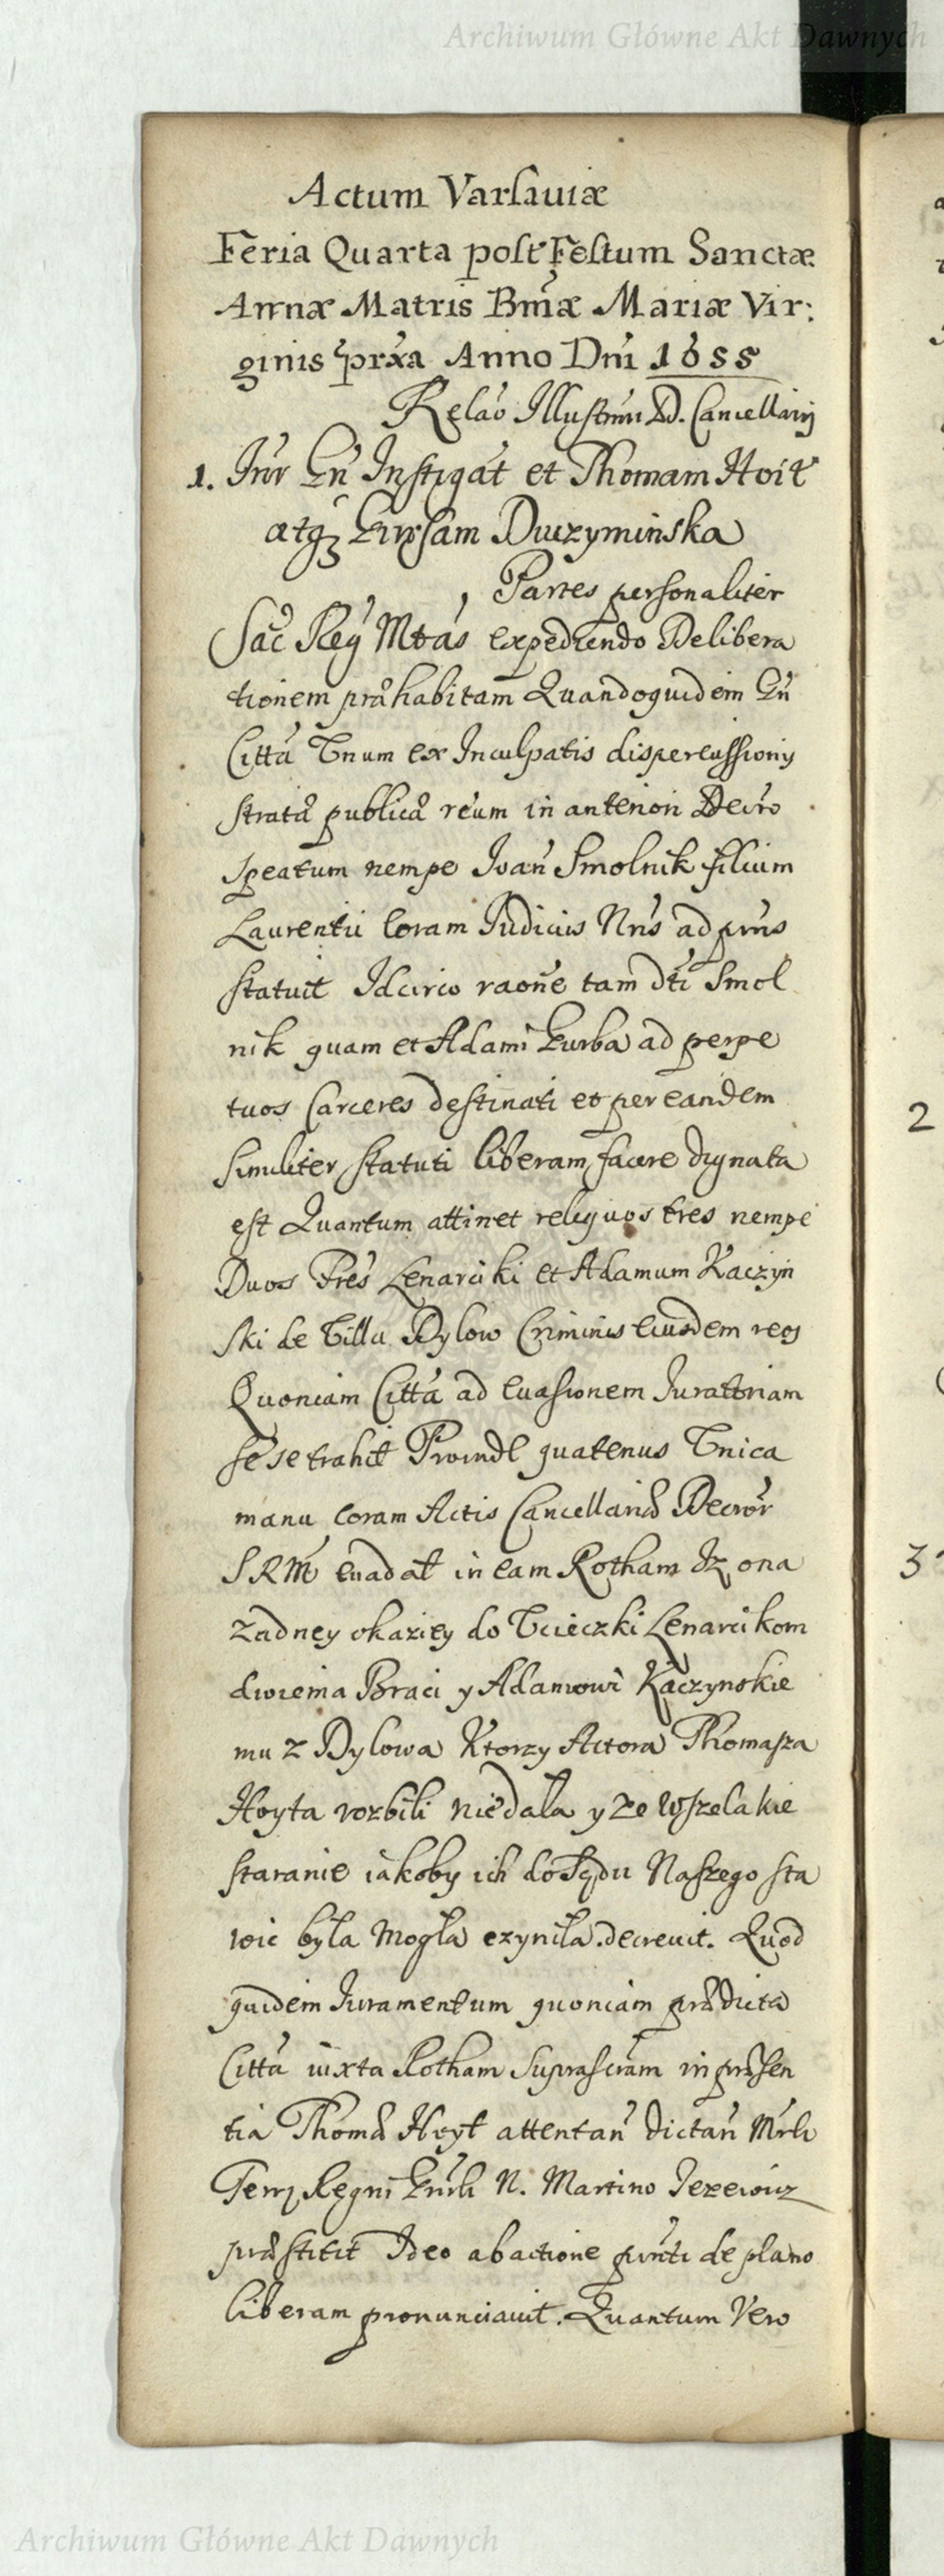 Archiwum Główne Akt Dawnych
Actum Varsauiæ
Feria Quarta post Festum Sanctæ
Annæ Matris Bmæ Mariæ Vir:
ginis prxa Anno Dni 1655
Relao Illustrmi D. Cancellarij
1. Inr Gn Instigat et Thomam Hoit
atq Ewsam Duczyminska
Partes personaliter
Sac Reg Mtas expediendo Delibera
tionem præhabitam Quandoquidem Gn
Citta Vnum ex Inculpatis dispercussionis
stratæ publicæ reum in anteriori Decro
speatum nempe Joan Smolnik filium
Laurentii coram Judiciis Nris ad prns
statuit Idcirco raone tam dti Smol
nik quam et Adami Kurba ad perpe
tuos Carceres destinati et per eandem
similiter statuti liberam facere dignata
est Quantum attinet reliquos tres nempe
Duos Fres Lenarciki et Adamum Kaczyn
ski de Villa Dylow Criminis eiusdem reos
Quoniam Citta ad euasionem Iuratoriam
se se trahit Proinde quatenus Vnica
manu coram Actis Cancellariæ Decror
SRM euadat in eam Rotham Iz ona
zadney okaziey do Vcieczki Lenarcikom
dwiema Braci y Adamowi Kaczynskie
mu z Dylowa Ktorzy Actora Thomasza
Hoyta rozbili niedala y ze wszelakie
staranie iakoby ich do Sądu Naszego sta
wic byla Mogla czynila. decreuit. Quod
quidem Iuramentum quoniam prædicta
Citta iuxta Rotham Suprascram in præsen
tia Thomæ Hoyt attentan dictan Mrli
Terr Regni Gnrli N. Martino Jezewicz
præstitit Ideo ab actione prnti de plano
liberam pronunciauit. Quantum Vero
2
3
Archiwum Główne Akt Dawnych